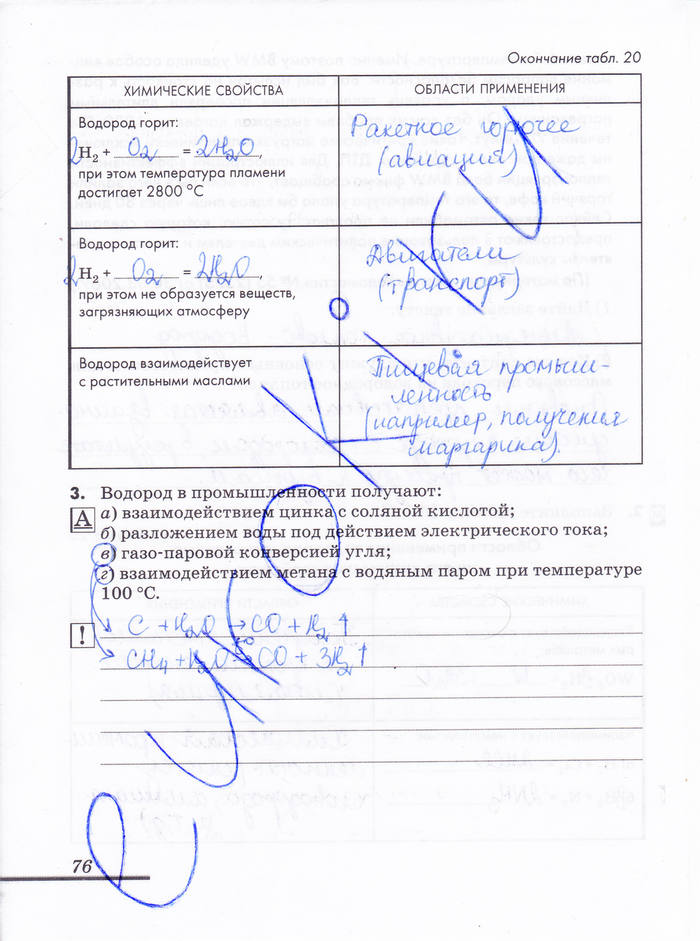 Окончание табл. 20
ХИМИЧЕСКИЕ СВОЙСТВА
ОБЛАСТИ ПРИМЕНЕНИЯ
Водород горит:
2H₂ + O₂ = 2H₂O
при этом температура пламени
достигает 2800 °С
Ракетное горючее
(авиация)
Водород горит:
2H₂ + O₂ = 2H₂O,
при этом не образуется веществ,
загрязняющих атмосферу
Двигатели
(транспорт)
Водород взаимодействует
с растительными маслами
Пищевая промыш-
ленность
(например, получения
маргарина).
3. Водород в промышленности получают:
А
а) взаимодействием цинка с соляной кислотой;
б) разложением воды под действием электрического тока;
в) газо-паровой конверсией угля;
г) взаимодействием метана с водяным паром при температуре
100 °С.
!
C + H₂O → CO + H₂↑
CH₄ + H₂O → CO + 3H₂↑
76